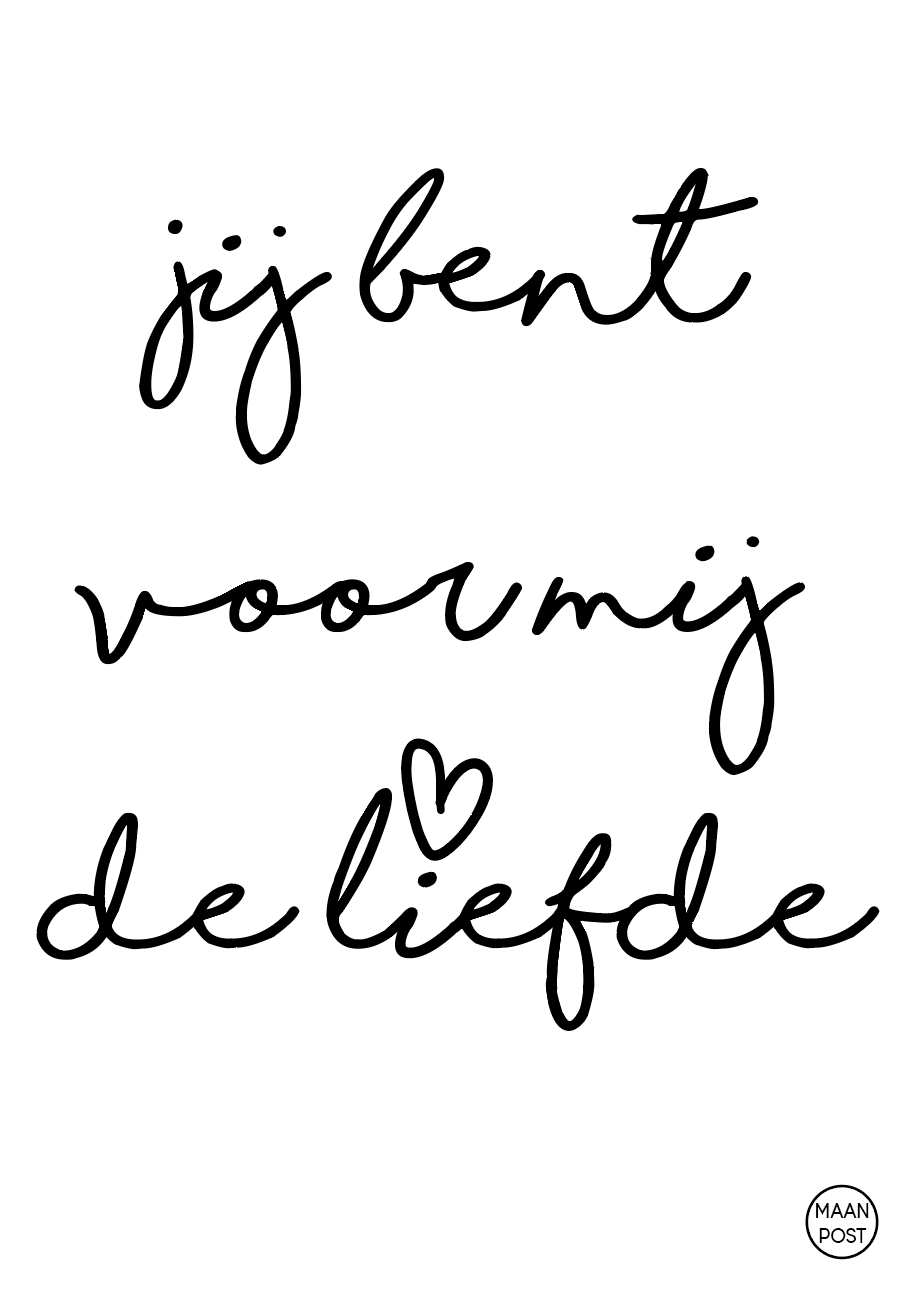 jij bent
voor mij
de liefde
MAAN
POST